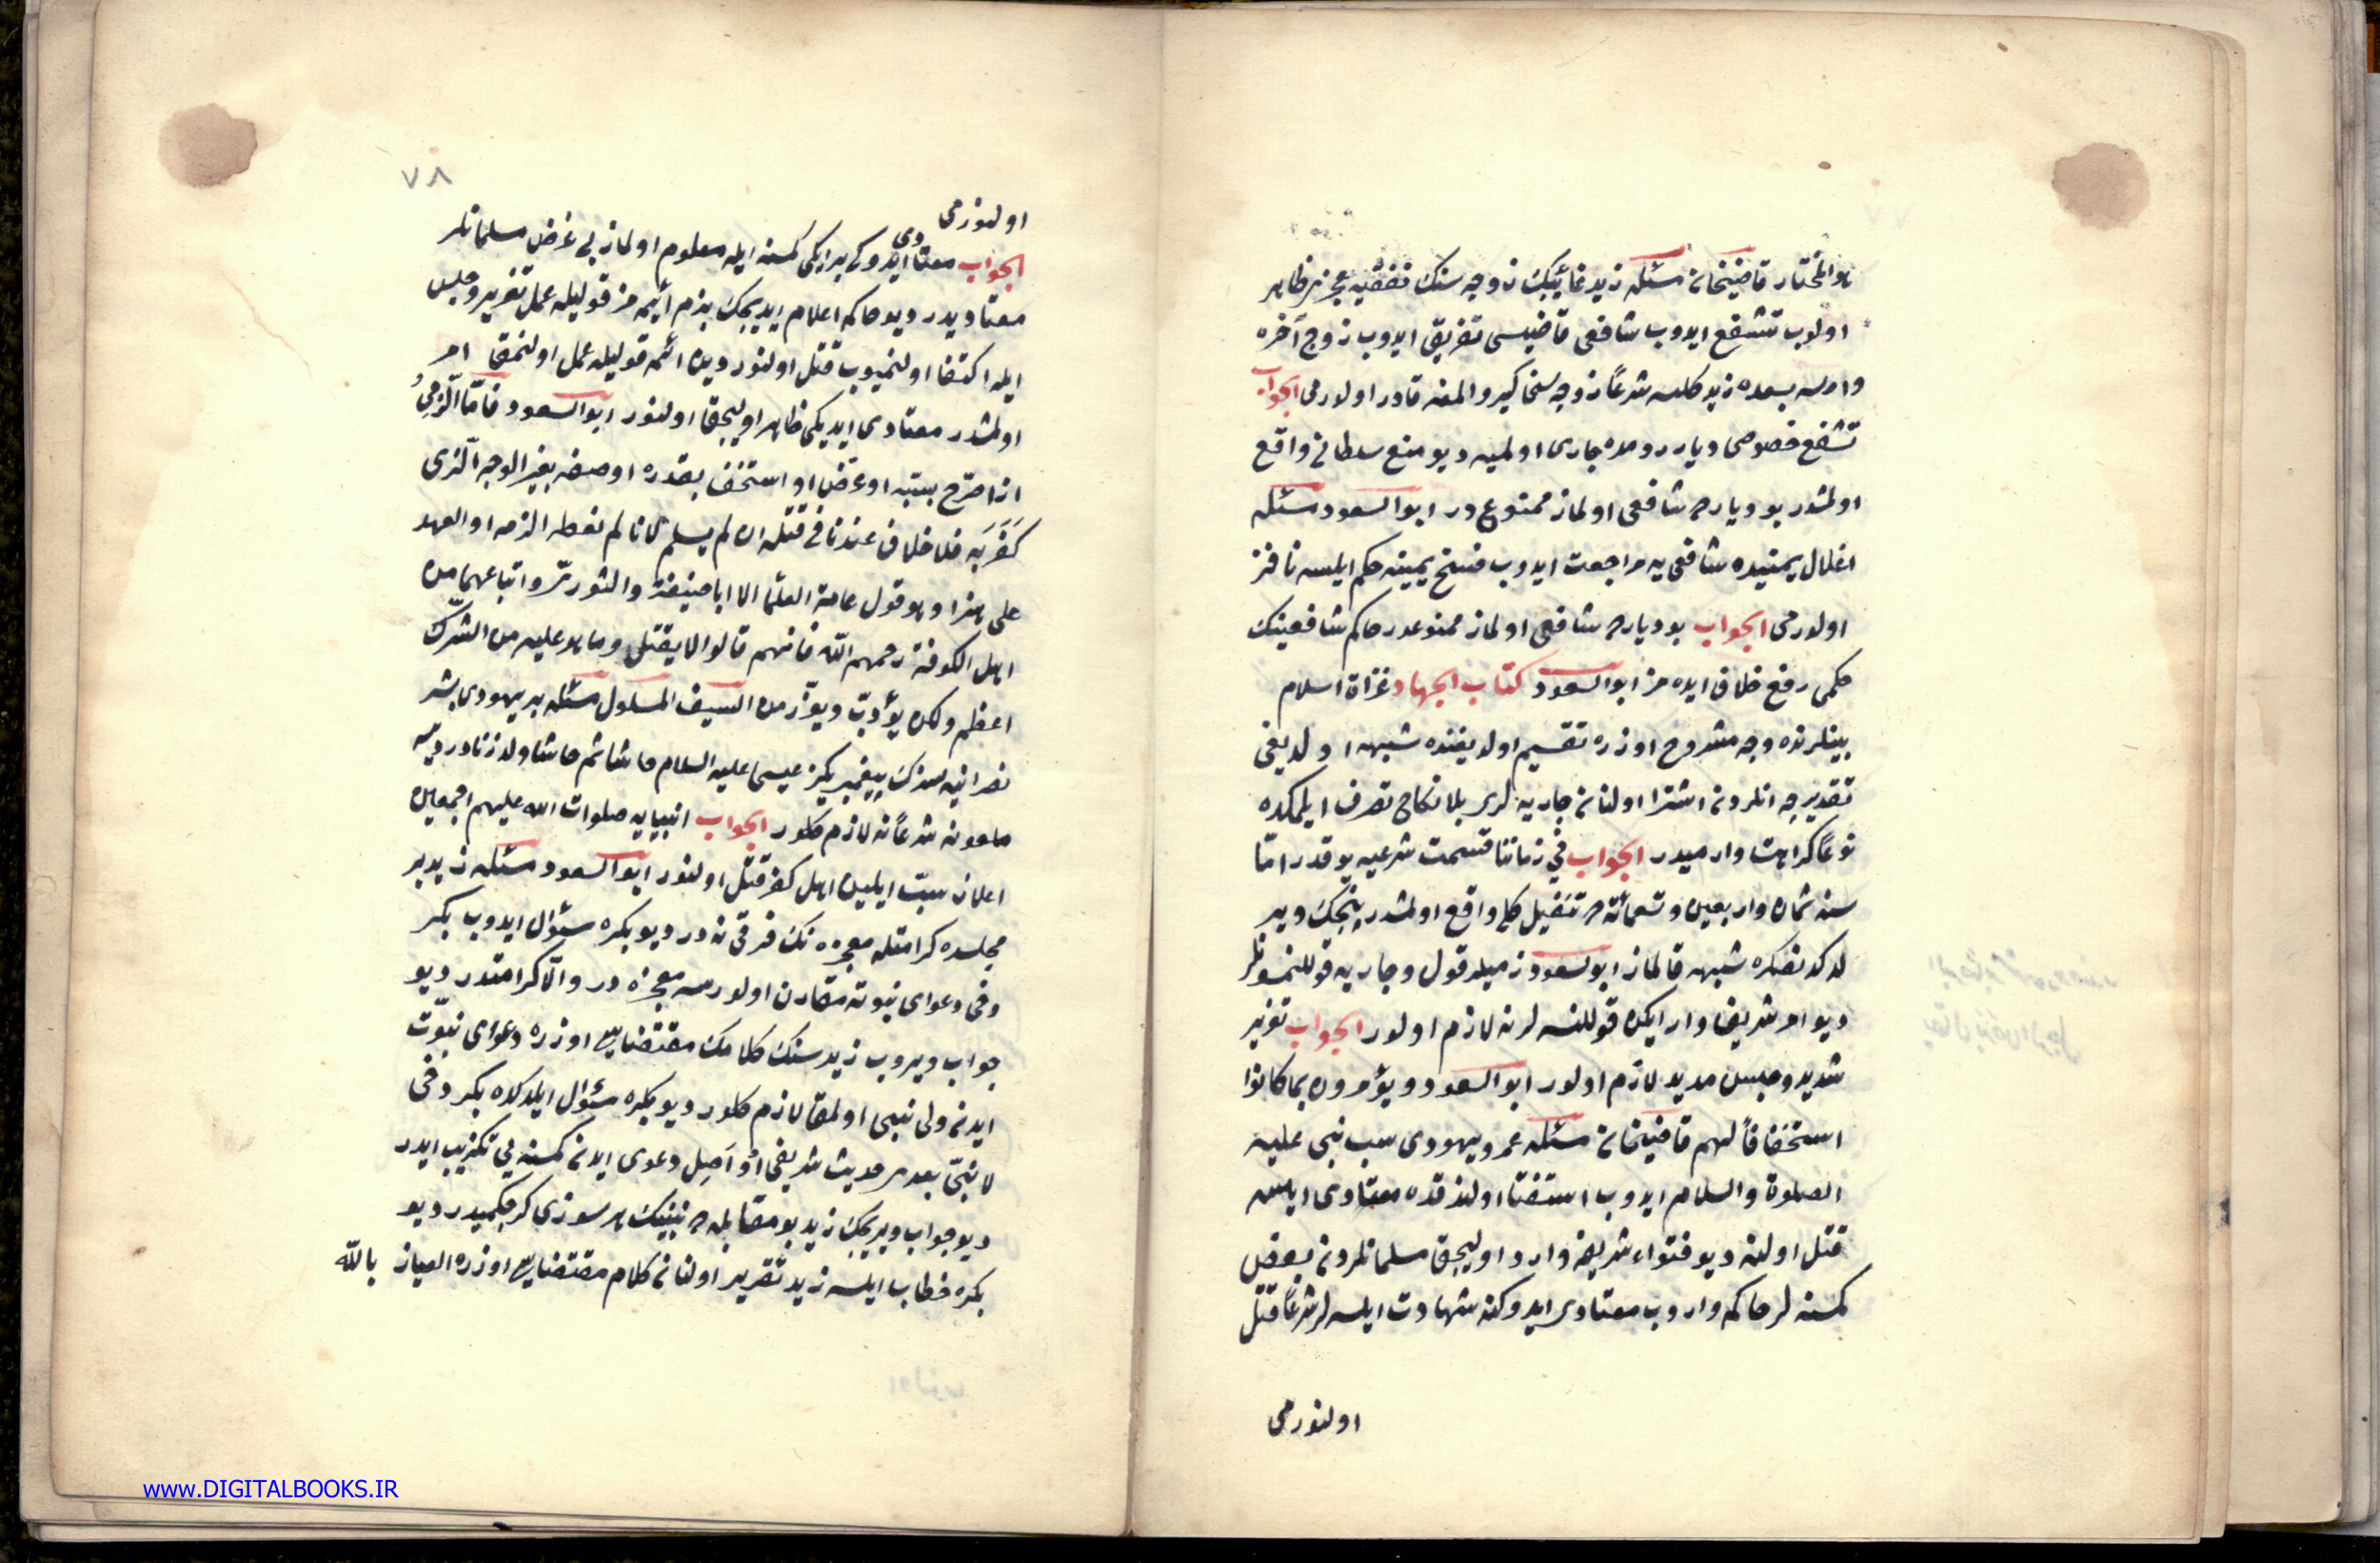 هو المختار قاضيخان مسئله زيد غائبك زوجه سنك نفقه عجز ظاهر
اولوب تشفع ايدوب شافعى قاضيسى تفريق ايدوب زوج آخره
وارسه بعده زيد كلسه شرعاً زوجه سنى كيرو المغه قادر اولورمى الجواب
تشفع خصوصى ديار رومده جارى اولميه ديو منع سلطانى واقع
اولمشدر بو ديارده شافعى اولماز ممنوع در ابو السعود مسئله
انحلال يمينده شافعى يه مراجعت ايدوب فسخ يمينه حكم ايلسه نافذ
اولورمى الجواب بو ديارده شافعى اولماز ممنوعدر حاكم شافعينك
حكمى رفع خلاف ايده مز ابو السعود كتاب الجهاد غزاة اسلام
بينلرنده وجه مشروح اوزره تقسيم اولديغنده شبهه اولديغى
تقديرجه انلردن اشترا اولنان جاريه لرى بلا نكاح تصرف ايلمكده
نوعاً كراهت وارميدر الجواب فى زماننا قسمت شرعيه يوقدر اما
سنه ثمان واربعين وتسعمائة ده تنفيل كلى واقع اولمشدر پنجك وير
لدكدنصكره شبهه قالماز ابو السعود زميلر قول وجاريه قوللنمسونلر
ديو امر شريف وار ايكن قوللنسه لر نه لازم اولور الجواب تعزير
شديد وحبس مديد لازم اولور ابو السعود ويؤمرون بما كانوا
استخفافاً لهم قاضيخان مسئله عمرو يهودى سب نبى عليه
الصلوة والسلام ايدوب استفتا اولندقده معتادى ايسه
قتل اولنه ديو فتواء شريفه وارد اوليجق مسلمانلردن بعض
كمسنه لر حاكمه واروب معتادى ايدوكنه شهادت ايلسه لر شرعاً قتل
اولنورمى
٧٨
اولنورمى
الجواب معتادى ايدوكى بر ايكى كمسنه ايله معلوم اولماز بى غرض مسلمانلر
معتاديدر ديو حاكمه اعلام ايديجك بزم ائمه مز قوليله عمل تعزير وحبس
ايله اكتفا اولنميوب قتل اولنور دين ائمه قوليله عمل اولنمق امر
اولمشدر معتادى ايديكى ظاهر اوليجق اولنور ابو السعود فأمّا الذمى
اذا صرّح بسبّه او عرّض او استخف بقدره او وصفه بغير الوجه الذى
كَفَرَ به فلا خلاف عندنا فى قتله ان لم يسلم لانا لم نعطه الذمه او العهد
على هذا وهو قول عامة العلما الا ابا حنيفة والثورىّ واتباعهما من
اهل الكوفة رحمهم الله فانهم قالوا لا يقتل وما هو عليه من الشرك
اعظم ولكن يؤدّب ويعزّر من السيف المسلول مسئله بر يهودى بشر
نصرانيه سزك پيغمبريكز عيسى عليه السلام حاشا ثم حاشا ولد زنادر ديسه
ملعونه شرعاً نه لازم كلور الجواب انبيايه صلوات الله عليهم اجمعين
اعلان سبّ ايلين اهل كفر قتل اولنور ابو السعود مسئله زيد بر
مجلسده كرامتله معجزه نك فرقى نه در ديو بكره سئوال ايدوب بكر
دخى دعواى نبوته مقارن اولورسه معجزه در والّا كرامتدر ديو
جواب ويروب زيد سنك كلامك مقتضاسى اوزره دعواى نبوّت
ايدن ولى نبى اولمق لازم كلور ديو بكره سئوال ايلدكده بكر دخى
لا نبىّ بعدى حديث شريفى اُو آصِل دعوى ايدن كمسنه يى تكذيب ايدر
ديو جواب ويريجك زيد بو مقابله ده نبينك هر سوزى كرچكميدر ديو
بكره خطاب ايلسه زيد تقرير اولنان كلام مقتضاسى اوزره العياذ بالله
www.DIGITALBOOKS.IR